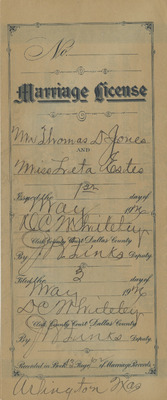 No.
Marriage License
Mr Thomas D Jones
AND
Miss Neta Estes
Issued the 1st day of
May 19
D C Whiteley
Clerk County Court Dallas County
By J Links Deputy
Filed the 3 day of
May 19
D C Whiteley
Clerk County Court Dallas County
By J Links Deputy
Recorded in Book Page of Marriage Records
Arlington Tex